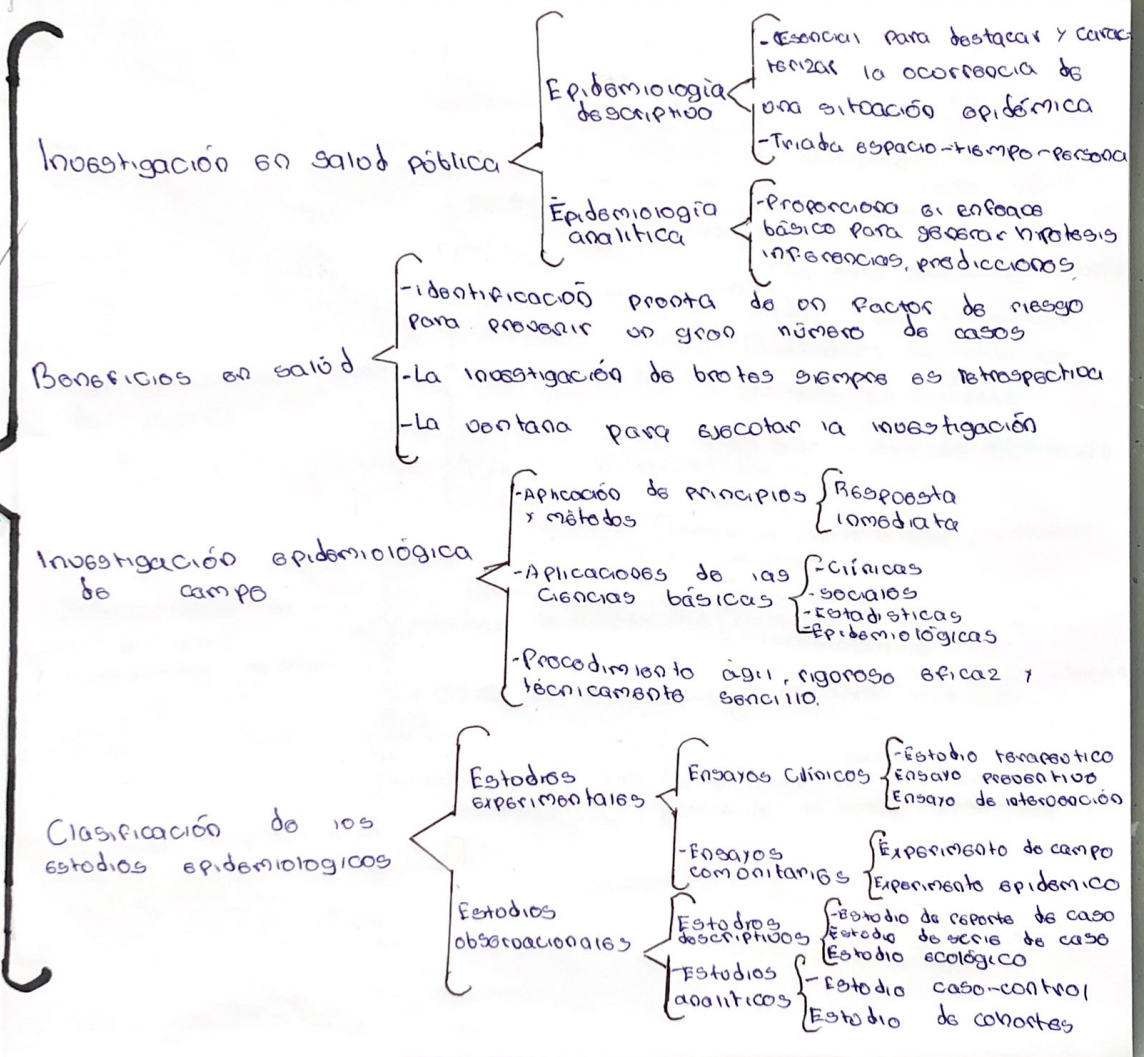 Investigación en salud pública
Epidemiología
descriptivo
-Esencial para destacar y carac-
terizar la ocorrencia de
una situación epidémica
-Triada espacio-tiempo-persona
Epidemiología
analítica
-Proporciona el enfoque
básico para generar hipotesis
inferencias, predicciones
Beneficios en salúd
-identificación pronta de un factor de riesgo
para prevenir un gran número de casos
-La investigación de brotes siempre es retrospectiva
-La ventana para ejecutar la investigación
Investigación epidemiológica
de campo
-Aplicación de principios
y métodos
Respuesta
inmediata
-Aplicaciones de las
Ciencias básicas
-Clínicas
-sociales
-Estadísticas
-Epidemiológicas
-Procedimiento ágil, rigoroso eficaz y
técnicamente sencillo.
Clasificación de los
estudios epidemiologicos
Estudios
experimentales
Ensayos Clínicos
-Estudio terapeutico
Ensayo preventivo
Ensayo de intervención
-Ensayos
comunitarios
Experimento de campo
Experimento epidemico
Estudios
observacionales
Estudios
descriptivos
-Estudio de reporte de caso
Estudio de serie de caso
Estudio ecológico
-Estudios
analíticos
-Estudio caso-control
Estudio de cohortes